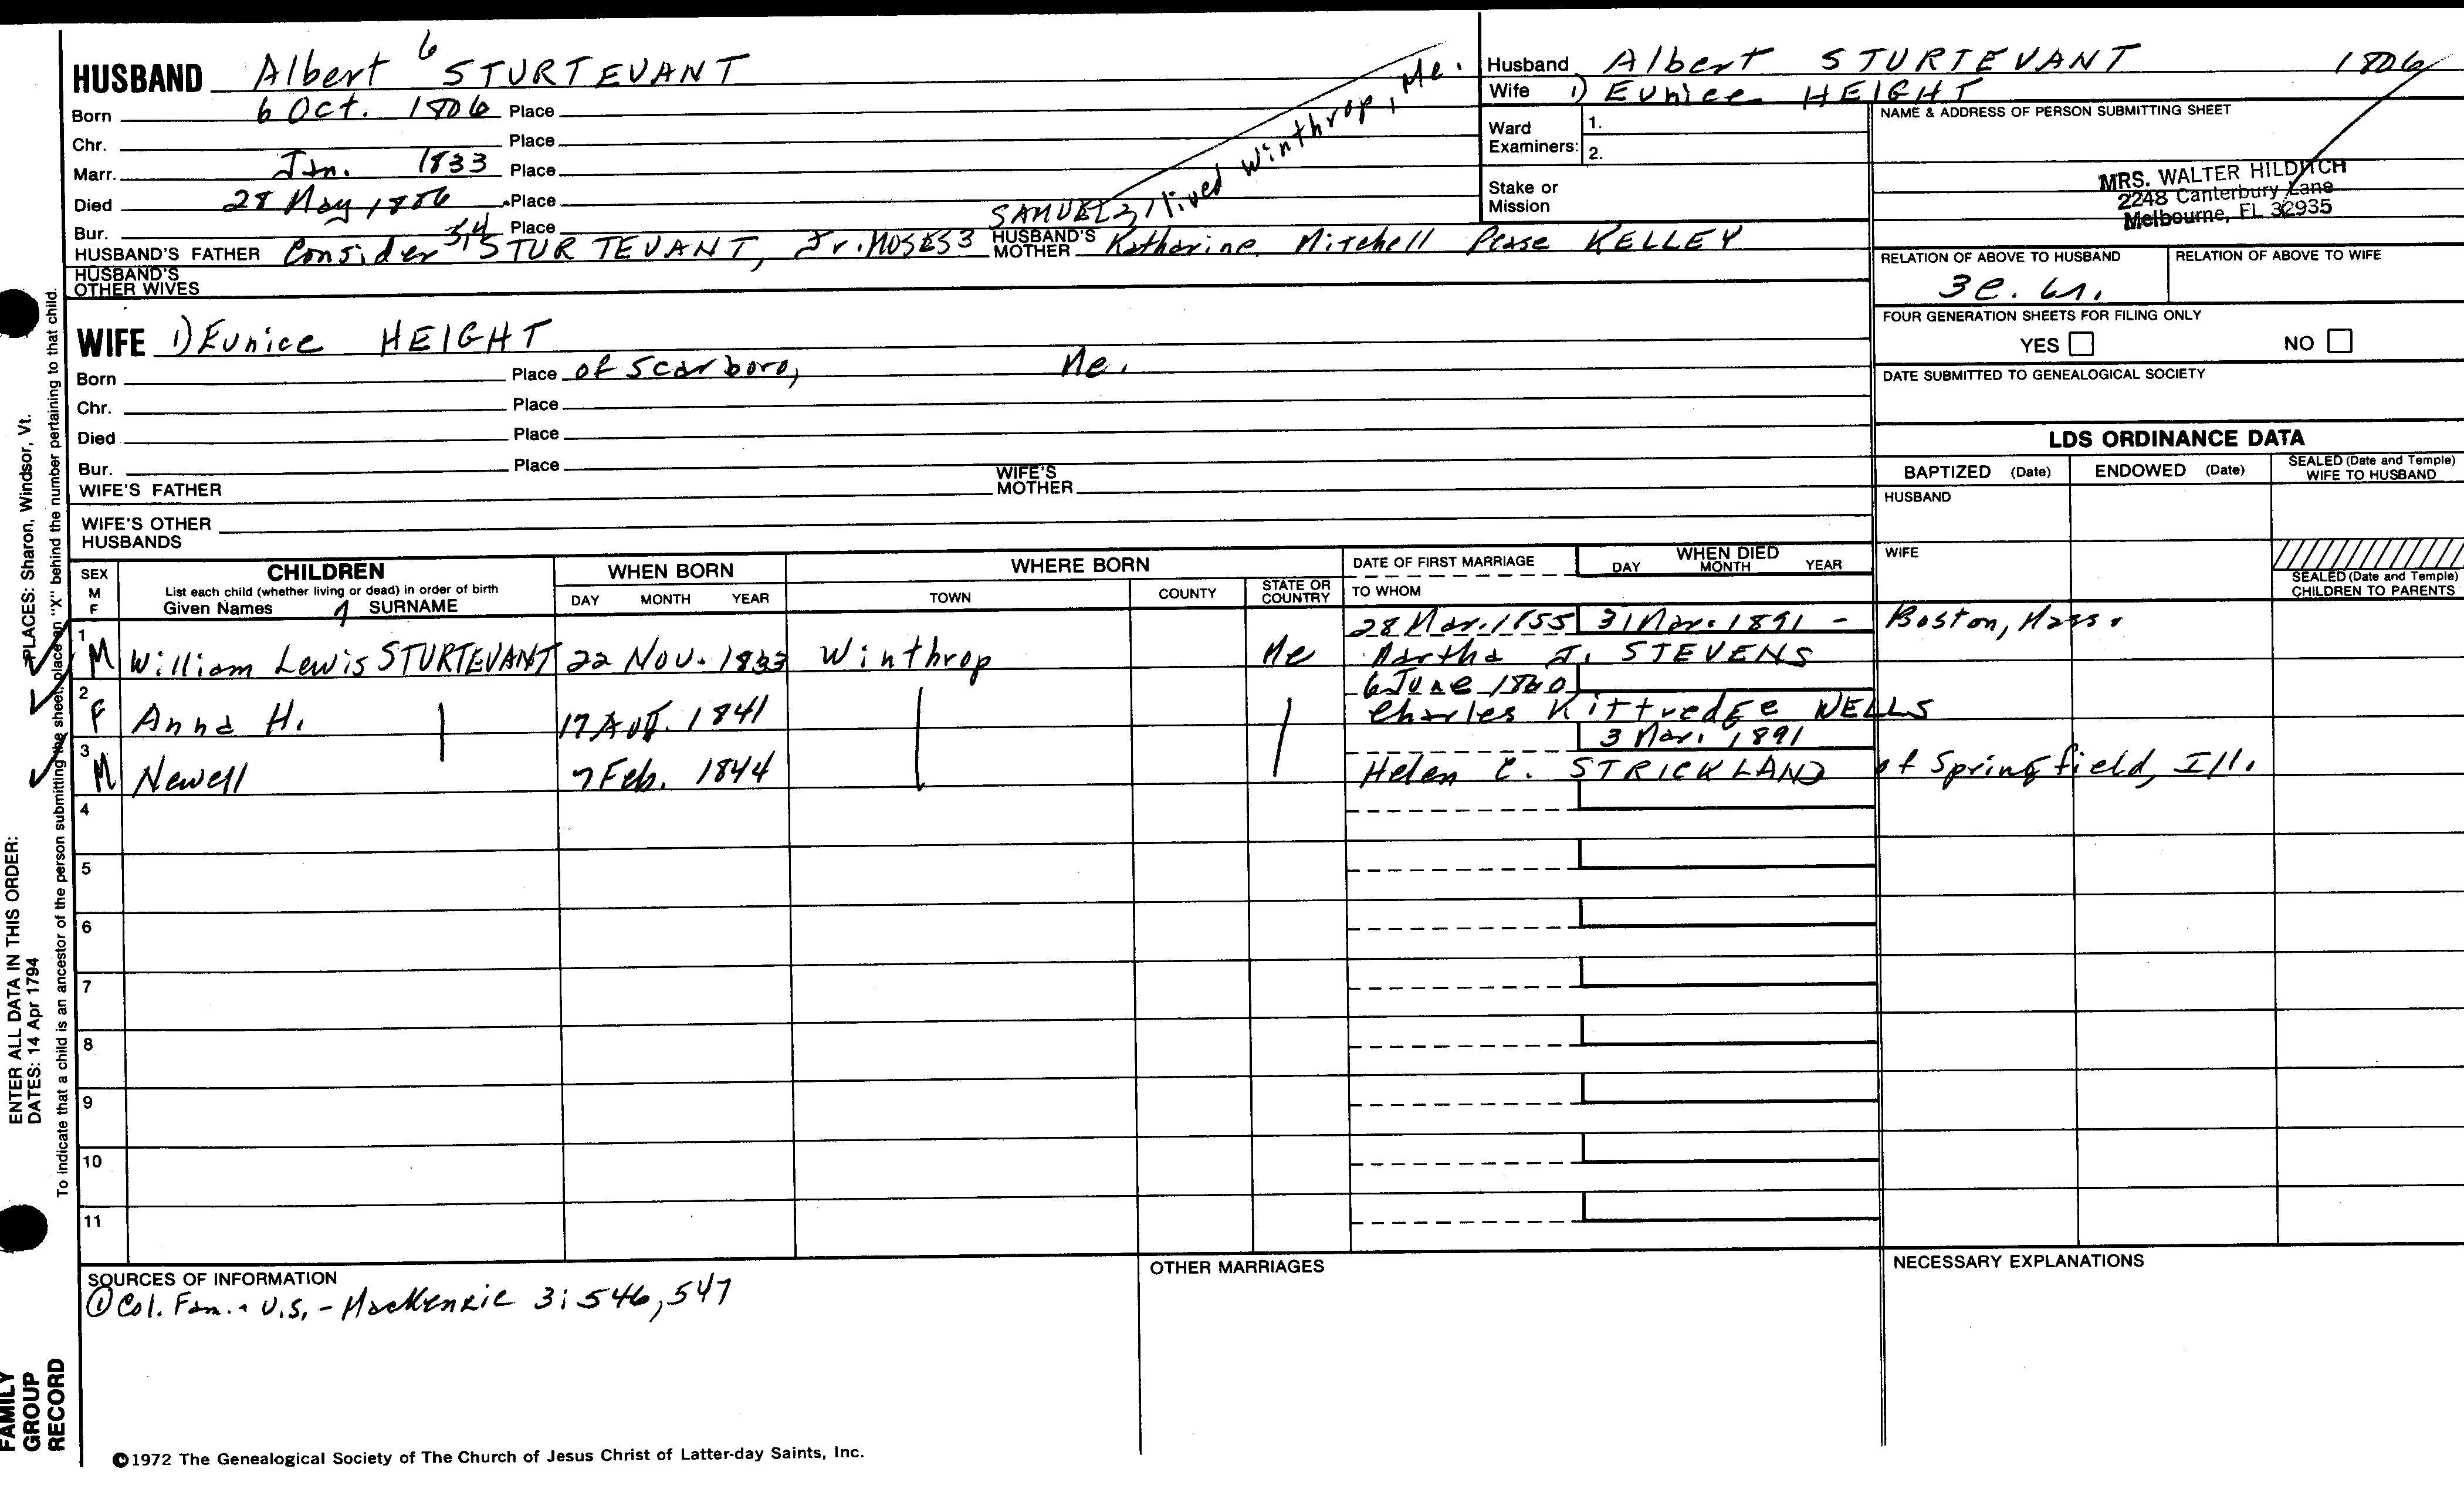 HUSBAND Albert 6 STURTEVANT
Born 6 Oct. 1806 Place
Chr. Place
Marr. Jan. 1833 Place
Died 28 May 1886 Place
Bur. Place
lived Winthrop, Me.
HUSBAND'S FATHER Consider 5,4 STURTEVANT, Jr. MOSES 3 SAMUEL 2, 1
HUSBAND'S MOTHER Katharine Mitchell Pease KELLEY
HUSBAND'S OTHER WIVES
WIFE 1) Eunice HEIGHT
Born Place of Scarboro, Me.
Chr. Place
Died Place
Bur. Place
WIFE'S FATHER
WIFE'S MOTHER
WIFE'S OTHER HUSBANDS
Husband Albert STURTEVANT 1806
Wife 1) Eunice HEIGHT
Ward Examiners: 1.
2.
Stake or Mission
NAME & ADDRESS OF PERSON SUBMITTING SHEET
MRS. WALTER HILDITCH
2248 Canterbury Lane
Melbourne, FL 32935
RELATION OF ABOVE TO HUSBAND
3c. 6r.
RELATION OF ABOVE TO WIFE
FOUR GENERATION SHEETS FOR FILING ONLY
YES NO
DATE SUBMITTED TO GENEALOGICAL SOCIETY
LDS ORDINANCE DATA
BAPTIZED (Date) ENDOWED (Date) SEALED (Date and Temple) WIFE TO HUSBAND
HUSBAND
WIFE
SEALED (Date and Temple) CHILDREN TO PARENTS
SEX M F
CHILDREN
List each child (whether living or dead) in order of birth
Given Names 7 SURNAME
WHEN BORN
DAY MONTH YEAR
WHERE BORN
TOWN COUNTY STATE OR COUNTRY
DATE OF FIRST MARRIAGE
TO WHOM
WHEN DIED
DAY MONTH YEAR
1 M William Lewis STURTEVANT 22 Nov. 1833 Winthrop Me 28 Mar. 1855 31 Mar. 1891 - Boston, Mass.
Martha J. STEVENS
2 F Anna H. 17 Aug. 1841 6 June 1860
Charles Kittredge WELLS
3 M Newell 7 Feb. 1844 3 Mar. 1891
Helen C. STRICKLAND of Springfield, Ill.
4
5
6
7
8
9
10
11
SOURCES OF INFORMATION
① Col. Fam. - U.S. - MacKenzie 3: 546, 547
OTHER MARRIAGES
NECESSARY EXPLANATIONS
©1972 The Genealogical Society of The Church of Jesus Christ of Latter-day Saints, Inc.
FAMILY GROUP RECORD
ENTER ALL DATA IN THIS ORDER:
DATES: 14 Apr 1794
PLACES: Sharon, Windsor, Vt.
To indicate that a child is an ancestor of the person submitting the sheet, place an "X" behind the number pertaining to that child.